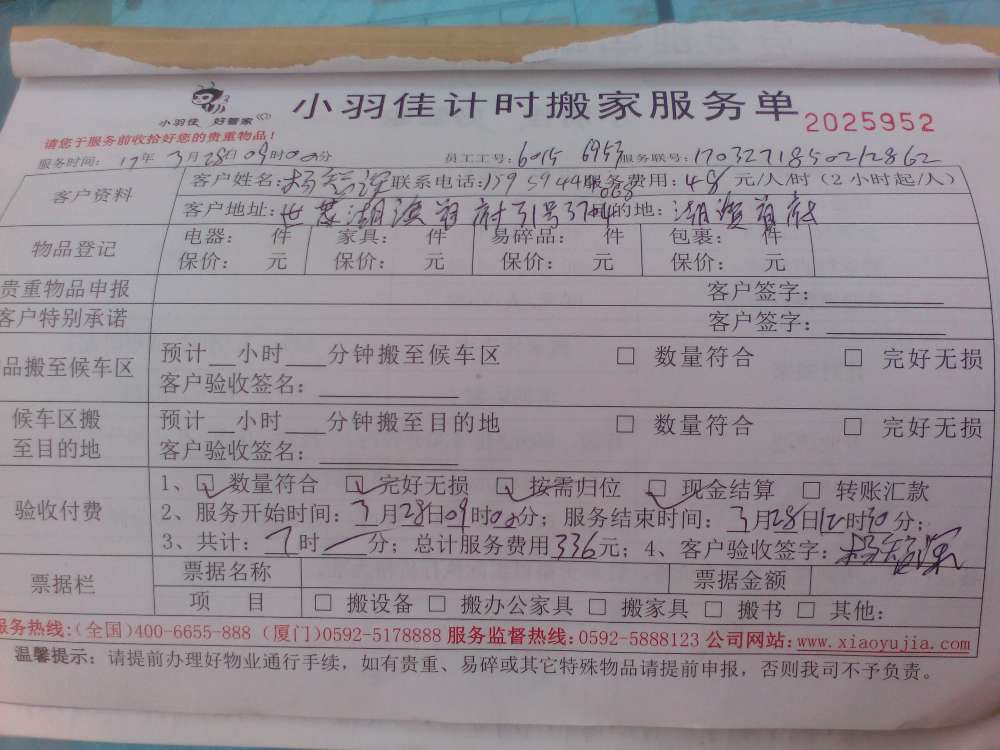 小羽佳计时搬家服务单
小羽佳 好管家
2025952
请您于服务前收拾好您的贵重物品！
服务时间：17年3月28日09时00分 员工工号：6015 6953 服务联号：1703271850212862
客户资料
客户姓名： 联系电话： 服务费用：48元/人/时（2小时起/人）
客户地址： 目的地：
物品登记
电器： 件 家具： 件 易碎品： 件 包裹： 件
保价： 元 保价： 元 保价： 元 保价： 元
贵重物品申报 客户签字：
客户特别承诺 客户签字：
品搬至候车区
预计___小时___分钟搬至候车区 □ 数量符合 □ 完好无损
客户验收签名：
候车区搬至目的地
预计___小时___分钟搬至目的地 □ 数量符合 □ 完好无损
客户验收签名：
验收付费
1、☑ 数量符合 ☑ 完好无损 ☑ 按需归位 ☑ 现金结算 □ 转账汇款
2、服务开始时间：3月28日09时00分；服务结束时间：3月28日12时30分；
3、共计：7时 分；总计服务费用336元；4、客户验收签字：
票据栏
票据名称 票据金额
项 目 □ 搬设备 □ 搬办公家具 □ 搬家具 □ 搬书 □ 其他：
服务热线：(全国)400-6655-888 (厦门)0592-5178888 服务监督热线：0592-5888123 公司网站：www.xiaoyujia.com
温馨提示：请提前办理好物业通行手续，如有贵重、易碎或其它特殊物品请提前申报，否则我司不予负责。